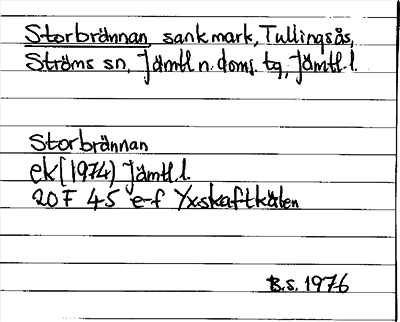 Storbrännan sankmark, Tullingsås,
Ströms sn, Jämtl n. doms. tg, Jämtl. l.
Storbrännan
ek (1974) Jämtl. l.
20 F 45 e-f Yxskaftkälen
B.S. 1976